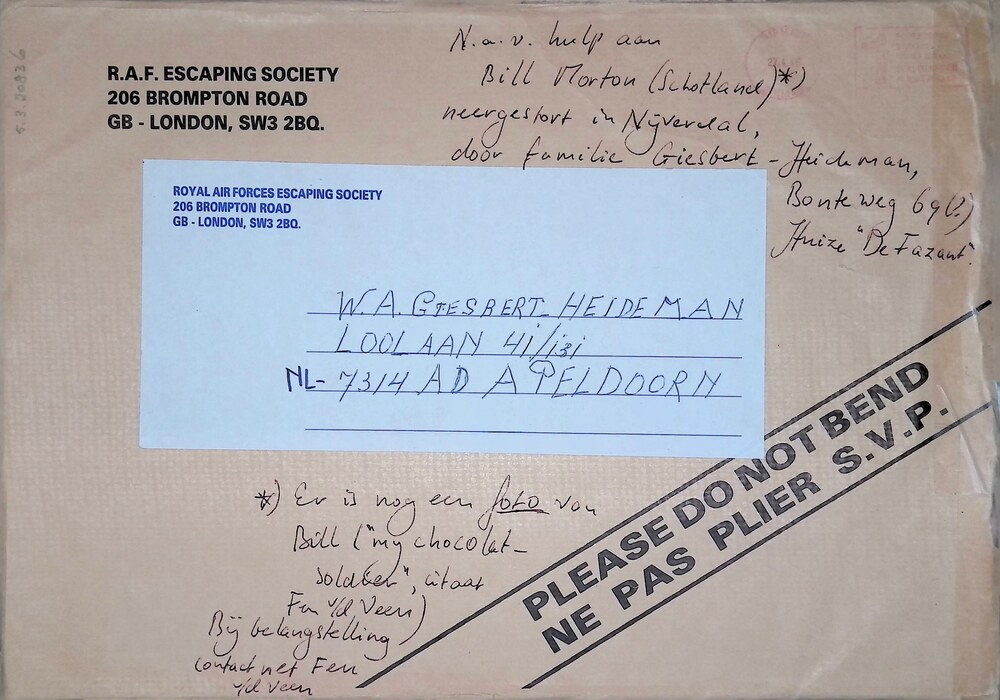 N.a.v. hulp aan
Bill Morton (Schotland)*)
neergestort in Nijverdal,
door familie Giesbert-Heideman,
Bonteweg 69(?)
Huize "De Fazant".
R.A.F. ESCAPING SOCIETY
206 BROMPTON ROAD
GB - LONDON, SW3 2BQ.
ROYAL AIR FORCES ESCAPING SOCIETY
206 BROMPTON ROAD
GB - LONDON, SW3 2BQ.
W.A. GIESBERT-HEIDEMAN
LOOLAAN 41/131
NL- 7314 AD APELDOORN
PLEASE DO NOT BEND
NE PAS PLIER S.V.P.
*) Er is nog een foto van
Bill ("my chocolat-
soldier", citaat
Fen v/d Veen)
Bij belangstelling
contact met Fen
v/d Veen